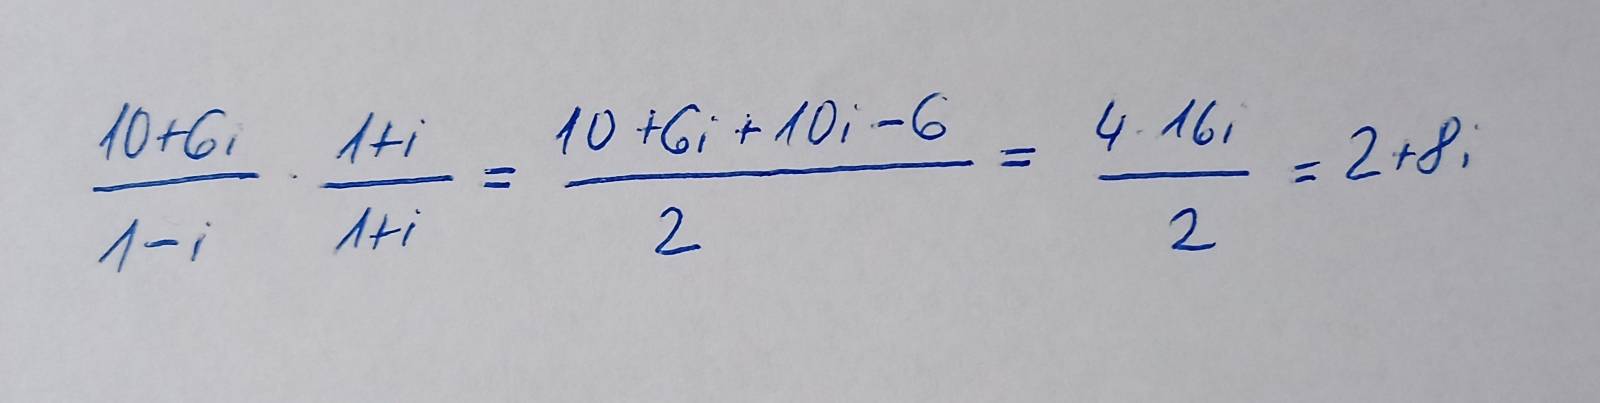 (10+6i)/(1-i) · (1+i)/(1+i) = (10+6i+10i-6)/2 = (4·16i)/2 = 2+8i